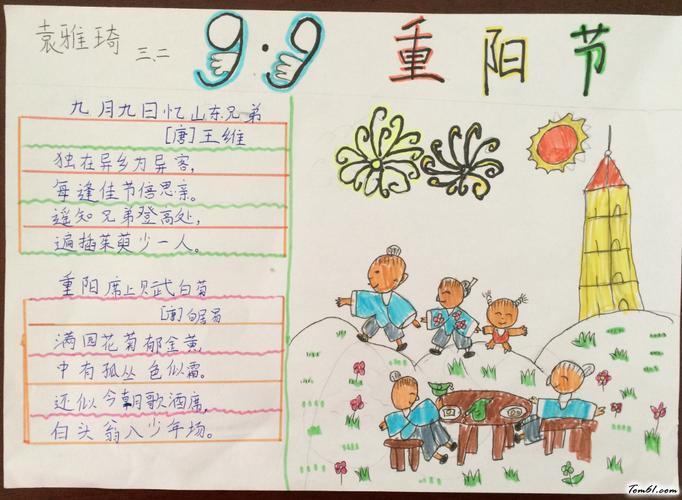 袁雅琦 三.二 9·9 重阳节
九月九日忆山东兄弟
[唐]王维
独在异乡为异客,
每逢佳节倍思亲。
遥知兄弟登高处,
遍插茱萸少一人。
重阳席上赋白菊
[唐]白居易
满园花菊郁金黄,
中有孤丛色似霜。
还似今朝歌酒席,
白头翁入少年场。
Tom61.com